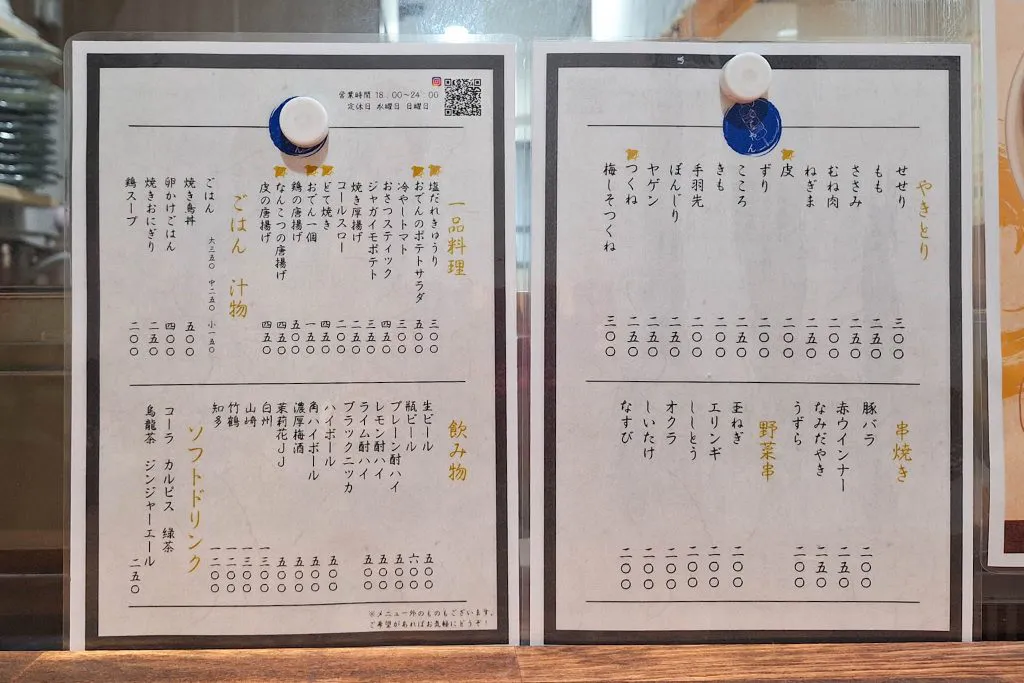 営業時間 18:00〜24:00
定休日 水曜日 日曜日
一品料理
塩だれきゅうり 三〇〇
おでんのポテトサラダ 五五〇
冷やしトマト 三〇〇
おさつスティック 四五〇
ジャガイモポテト 三五〇
焼き厚揚げ 四〇〇
コールスロー 二〇〇
どて焼き 四五〇
おでん一個 一五〇
鶏の唐揚げ 五〇〇
なんこつの唐揚げ 四五〇
皮の唐揚げ 四五〇
ごはん 汁物
ごはん 大三五〇 中二五〇 小一五〇
焼き鳥丼 五〇〇
卵かけごはん 四〇〇
焼きおにぎり 二五〇
鶏スープ 二〇〇
飲み物
生ビール 五〇〇
瓶ビール 六〇〇
プレーン酎ハイ 五〇〇
レモン酎ハイ 五〇〇
ライム酎ハイ 五〇〇
ブラックニッカ
ハイボール 五〇〇
角ハイボール 五〇〇
濃厚梅酒 五〇〇
茉莉花JJ 五〇〇
白州 一三〇〇
山崎 一三〇〇
竹鶴 一二〇〇
知多 一一〇〇
ソフトドリンク
コーラ カルピス 緑茶
烏龍茶 ジンジャーエール 二五〇
※メニュー外のものもございます。
ご希望があればお気軽にどうぞ!
やきとり
せせり 三〇〇
もも 二五〇
ささみ 二五〇
むね肉 二〇〇
ねぎま 二〇〇
皮 二〇〇
ずり 二〇〇
こころ 二五〇
きも 二〇〇
手羽先 二〇〇
ぼんじり 二五〇
ヤゲン 二五〇
つくね 二五〇
梅しそつくね 三〇〇
串焼き
豚バラ 二〇〇
赤ウインナー 二五〇
なみだやき 二五〇
うずら 二〇〇
野菜串
玉ねぎ 二〇〇
エリンギ 二〇〇
ししとう 二〇〇
オクラ 二〇〇
しいたけ 二〇〇
なすび 二〇〇